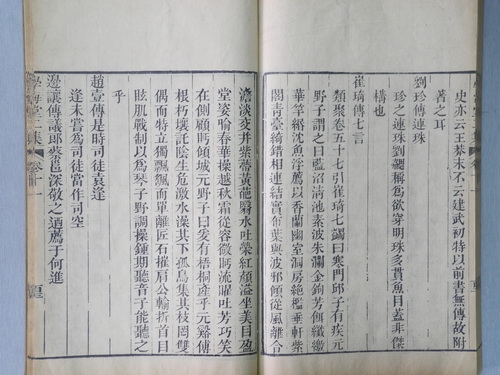 史亦云王莽末不云建武初特以前書無傳故附
著之耳
劉珍傳連珠
珍之連珠劉勰稱爲欲穿明珠多貫魚目蓋非傑
構也
崔琦傳七言
類聚卷五十七引崔琦七蠲曰寒門邱子有疾元
野子謂之曰藍沼清池素波朱瀾金鉤芳餌纖繳
華竿緡沈魚浮薦以香蘭幽室洞房絶檻垂軒紫
閣青臺綺錯相連結實布葉與波邪傾從風離合
澹淡交并紫蔕黃葩翳水吐榮紅顏溢坐美目盈
堂姿喻春華操越秋霜從容微眄流曜吐芳巧笑
在側顧眄傾城元野子曰爰有梧桐產乎元谿傅
根朽壤託陰生危激水澡其下孤鳥集其枝罔雙
偶而特立獨飄飖而單離匠石摧肩公輸折首目
眩肌戰制以爲琴子野調操鍾期聽音子能聽之
乎
趙壹傳是時司徒袁逢
逢未嘗爲司徒當作司空
邊讓傳議郎蔡邕深敬之迺薦于何進
學海堂二集 卷十一